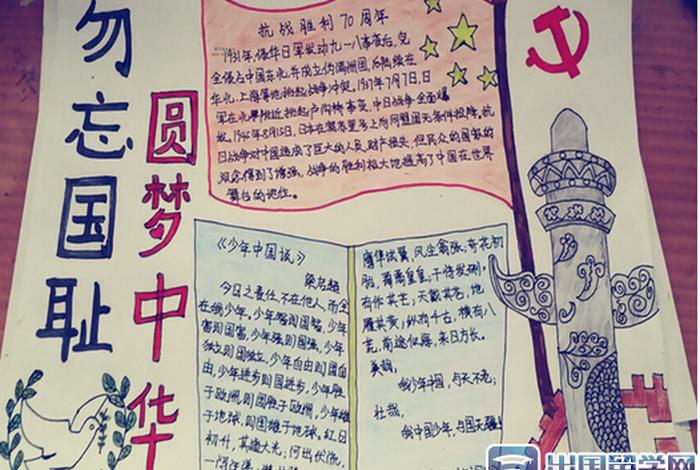 勿忘国耻
圆梦中华
抗战胜利70周年
1931年,侵华日军发动九一八事变后,完
全侵占中国东北,并成立伪满洲国,后陆续在
华北、上海等地挑起战争冲突。1937年7月7日,日
军在北平附近挑起卢沟桥事变,中日战争全面爆
发。1945年8月15日,日本在宣布无条件投降。抗
日战争对中国造成了巨大的人员、财产损失,但民众的国家的
观念得到了增强。战争的胜利极大地提高了中国在世界
舞台的地位。
《少年中国说》
梁启超
今日之责任,不在他人,而全
在我少年。少年强则国智,少年
富则国富,少年强则国强,少年
独立则国独立,少年自由则国自
由,少年进步则国进步,少年胜
于欧洲,则国胜于欧洲,少年雄
于地球,则国雄于地球。红日
初升,其道大光;河出伏流,
一泻汪洋;
鹰隼试翼,风尘翕张;奇花初
胎,矞矞皇皇;干将发硎,
有作其芒;天戴其苍,地
履其黄;纵有千古,横有八
荒;前途似海,来日方长。
美哉,
我少年中国,与天不老;
壮哉,
我中国少年,与国无疆!
出国留学网